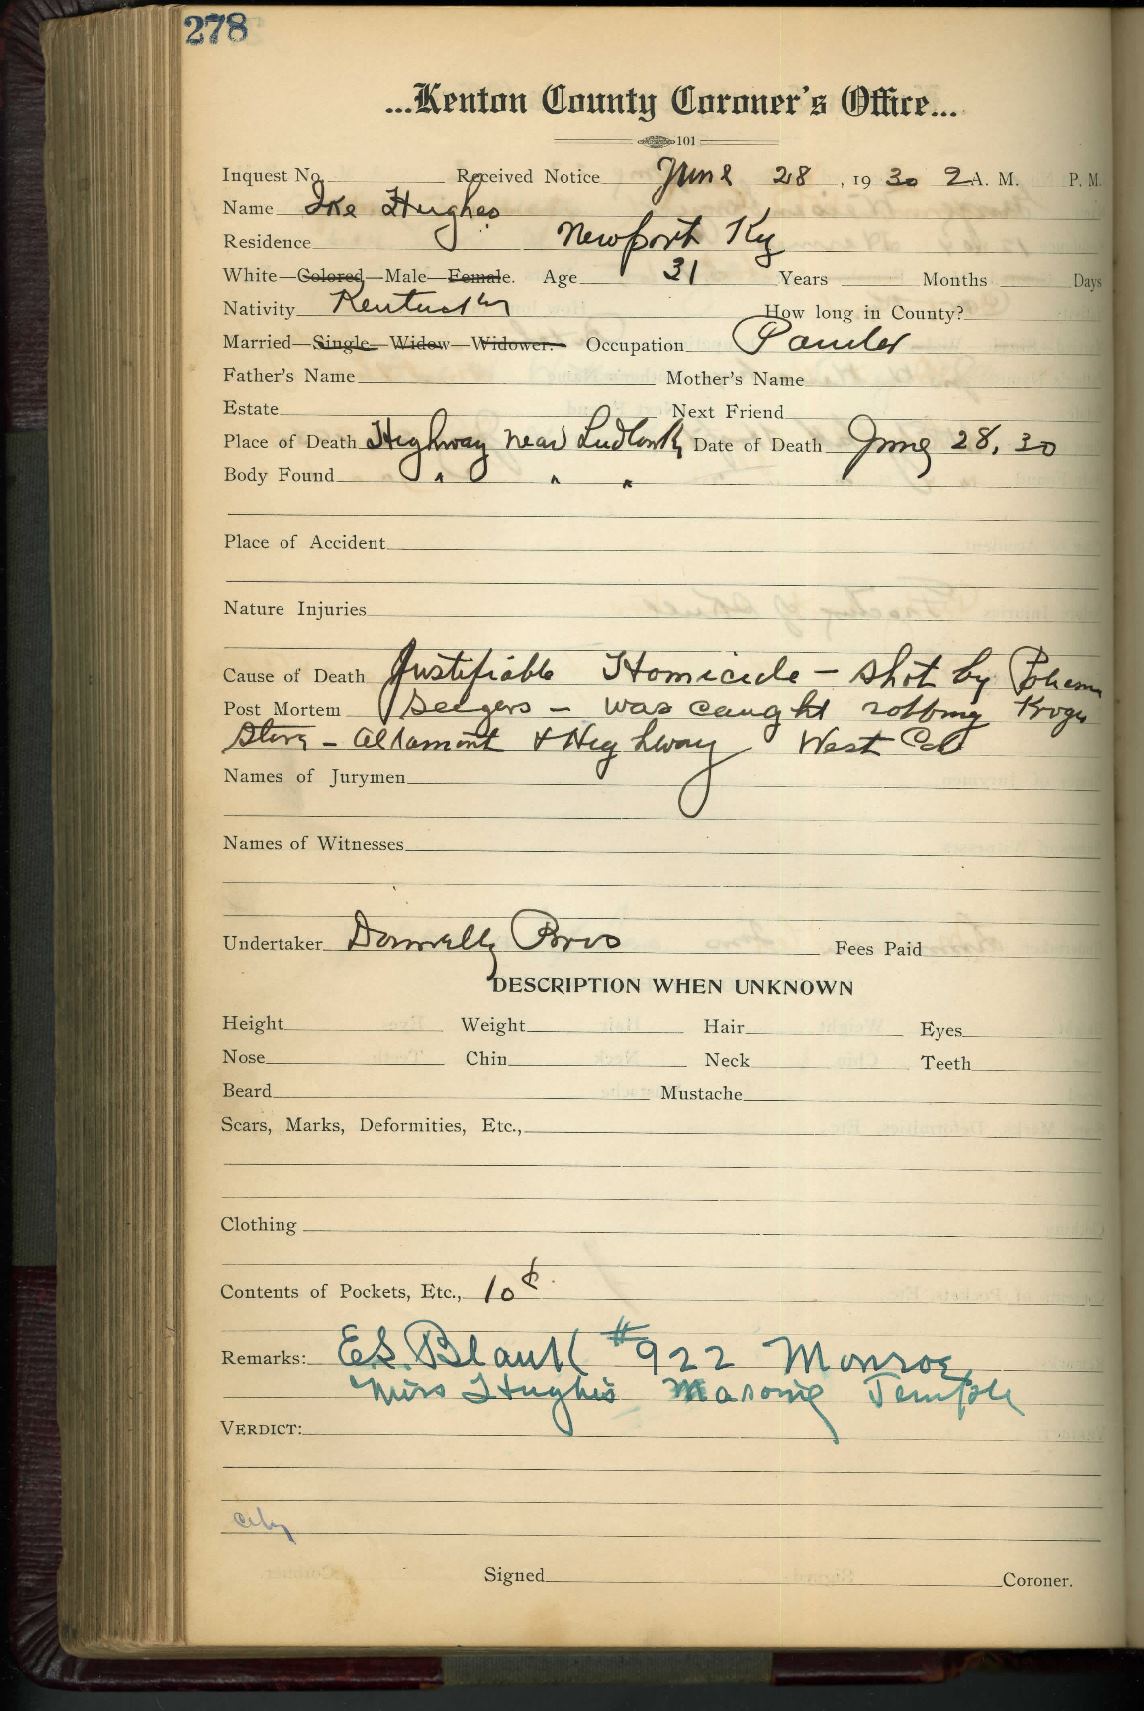 278
...Kenton County Coroner's Office...
101
Inquest No. Received Notice June 28, 1930 2 A. M. P. M.
Name Ike Hughes
Residence Newport Ky
White—Colored—Male—Female. Age 31 Years Months Days
Nativity Kentucky How long in County?
Married—Single—Widow—Widower.— Occupation
Father's Name Mother's Name
Estate Next Friend
Place of Death Highway near Ludlow Ky Date of Death June 28, 30
Body Found " " "
Place of Accident
Nature Injuries
Cause of Death Justifiable Homicide - shot by
Post Mortem Seegers - was caught robbing Kroger
Store - Altamont & Highway West Cov
Names of Jurymen
Names of Witnesses
Undertaker Donnelly Bros Fees Paid
DESCRIPTION WHEN UNKNOWN
Height Weight Hair Eyes
Nose Chin Neck Teeth
Beard Mustache
Scars, Marks, Deformities, Etc.,
Clothing
Contents of Pockets, Etc., 10¢
Remarks: E.S. Blank #922 Monroe
Miss Hughes Masonic Temple
VERDICT:
city
Signed Coroner.